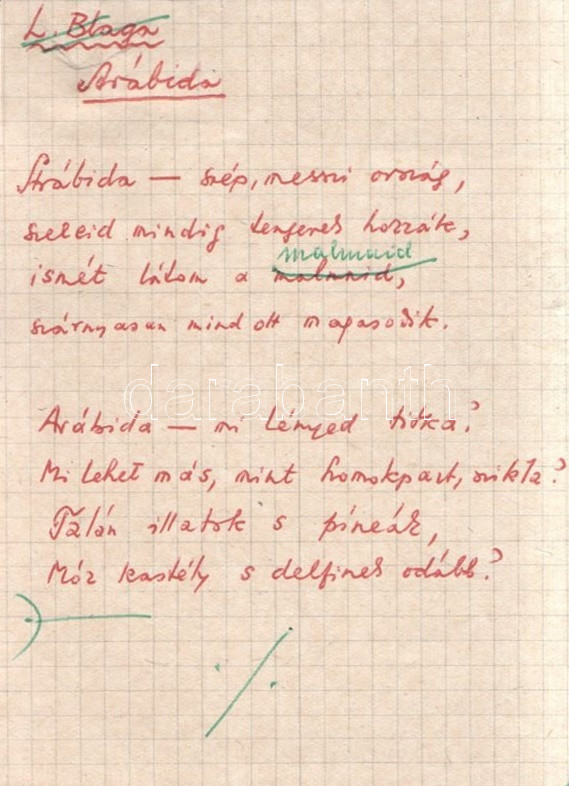 L. Blaga
Arábida
Arábida — szép, messzi ország,
szeleid mindig tengerek hozzák,
malmaid
ismét látom a malmaid,
szárnyasan mind ott magasodik.
darabanth
Arábida — mi lényed titka?
Mi lehet más, mint homokpart, szikla?
Talán illatok s píneák,
Mór kastély s delfinek odább?